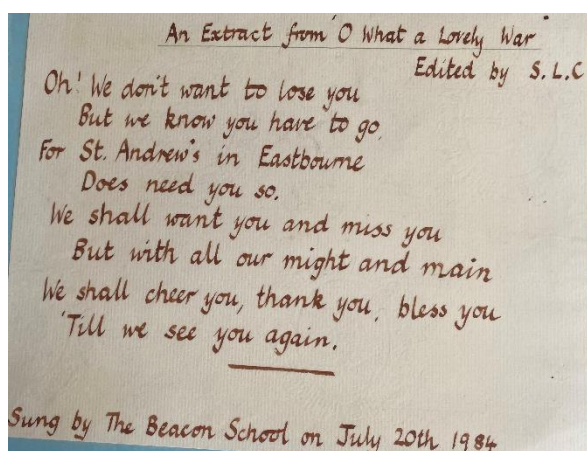 An Extract from 'O What a Lovely War'
Edited by S.L.C
Oh! We don't want to lose you
But we know you have to go.
For St. Andrew's in Eastbourne
Does need you so.
We shall want you and miss you
But with all our might and main
We shall cheer you, thank you, bless you
'Till we see you again.
Sung by The Beacon School on July 20th 1984